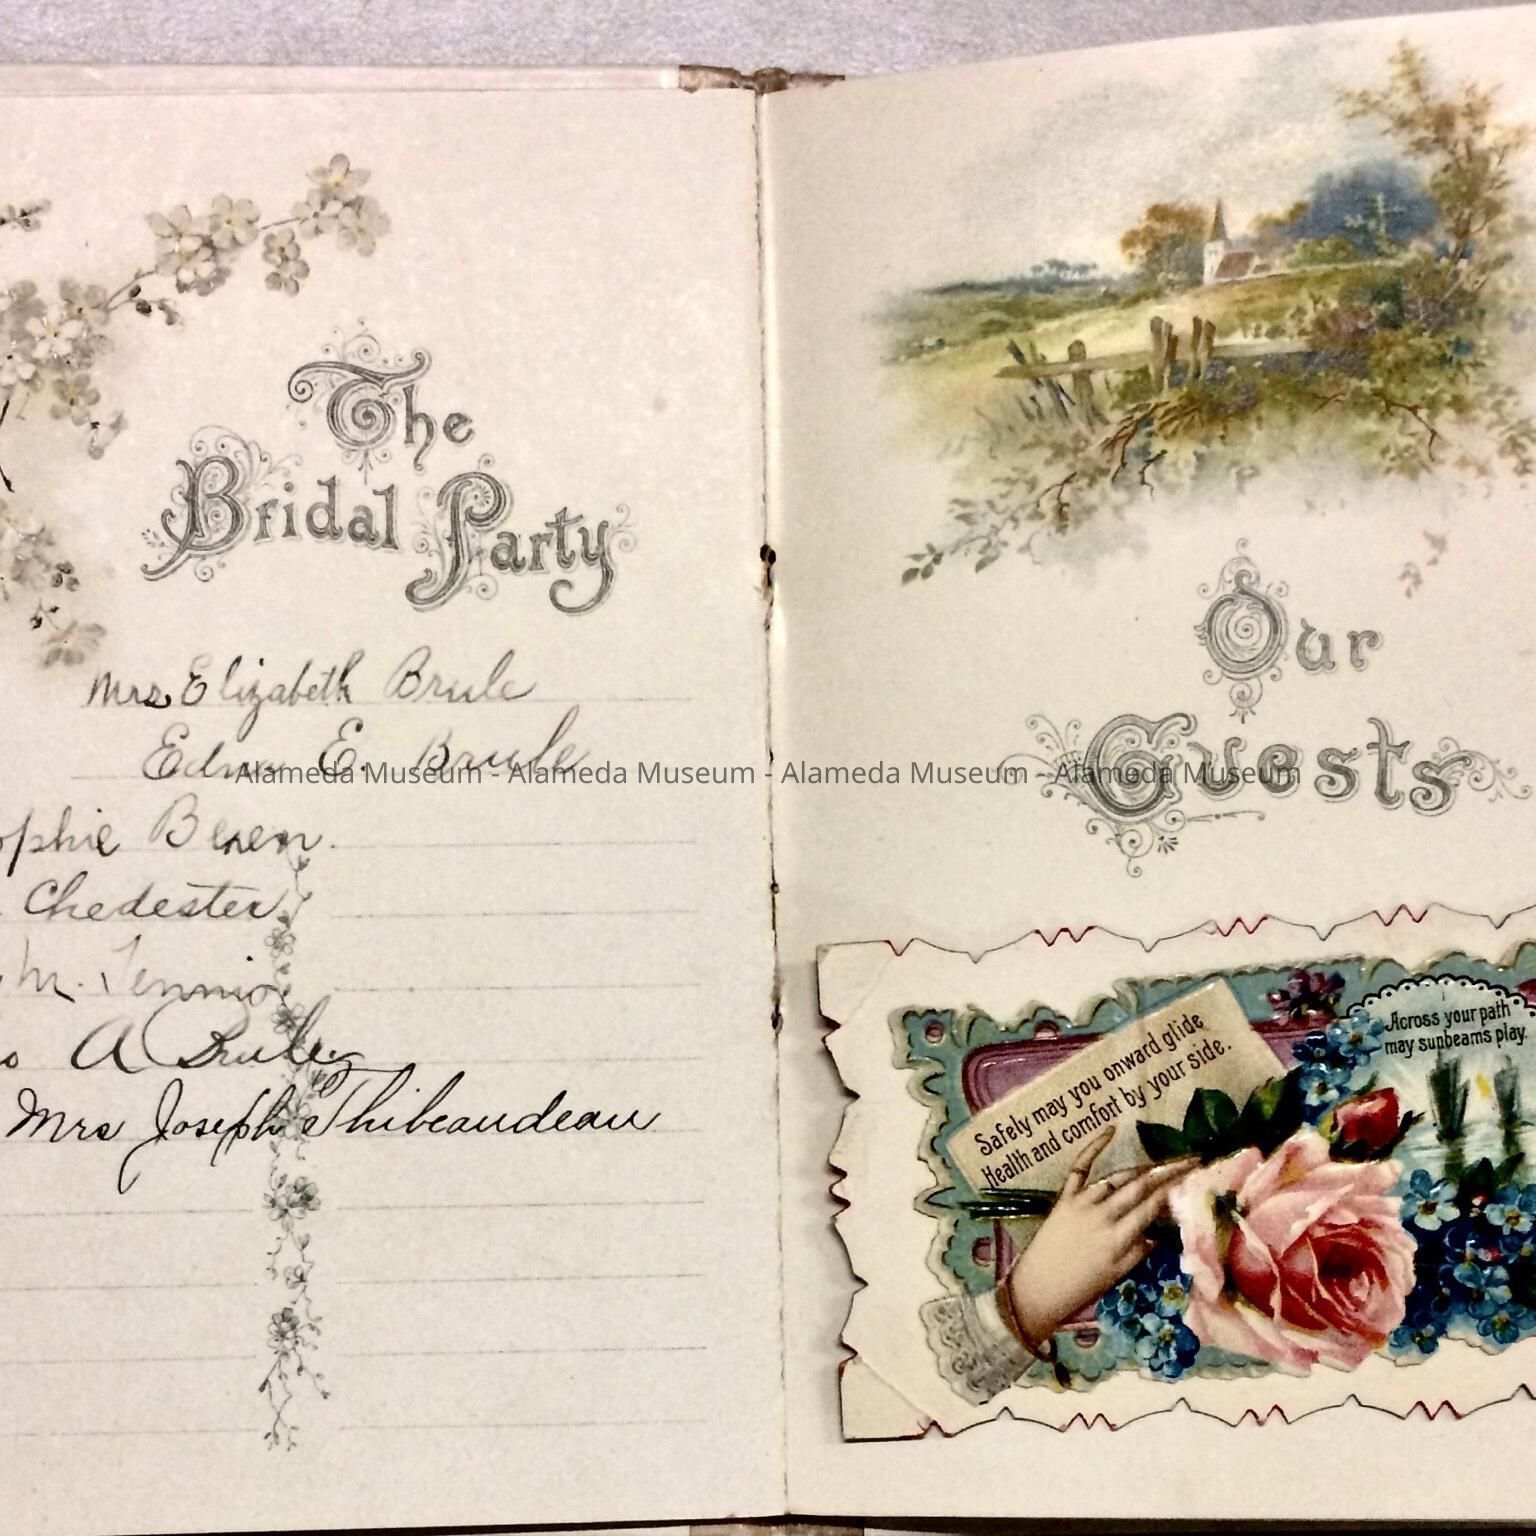 The
Bridal Party
Mrs Elizabeth Brule
E. Brule
ophie
Chedester
M. Tennio
A Brule
Mrs Joseph Thibeaudeau
Our
Guests
Safely may you onward glide
Health and comfort by your side.
Across your path
may sunbeams play.
Alameda Museum - Alameda Museum - Alameda Museum - Alameda Museum